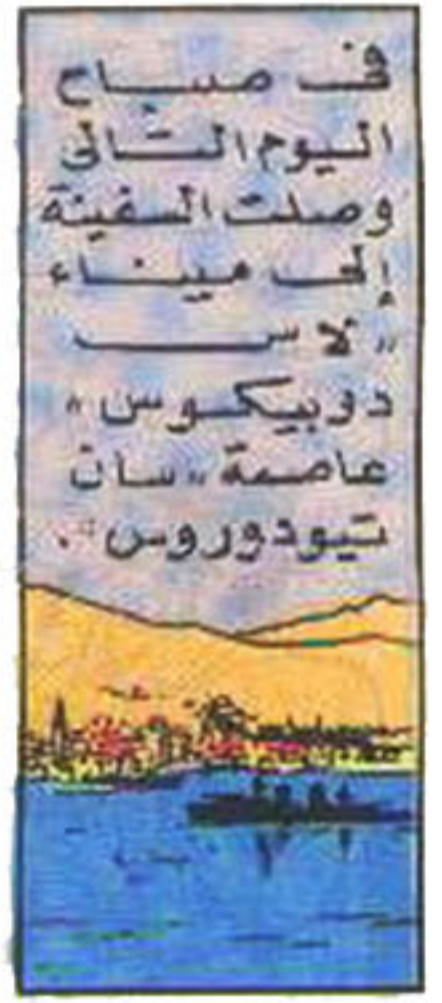 فى مساح
اليوم التالى
وصلت السفينة
إلى ميناء
"لاس
دوبيكوس"
عاصمة "سان
تيودوروس".